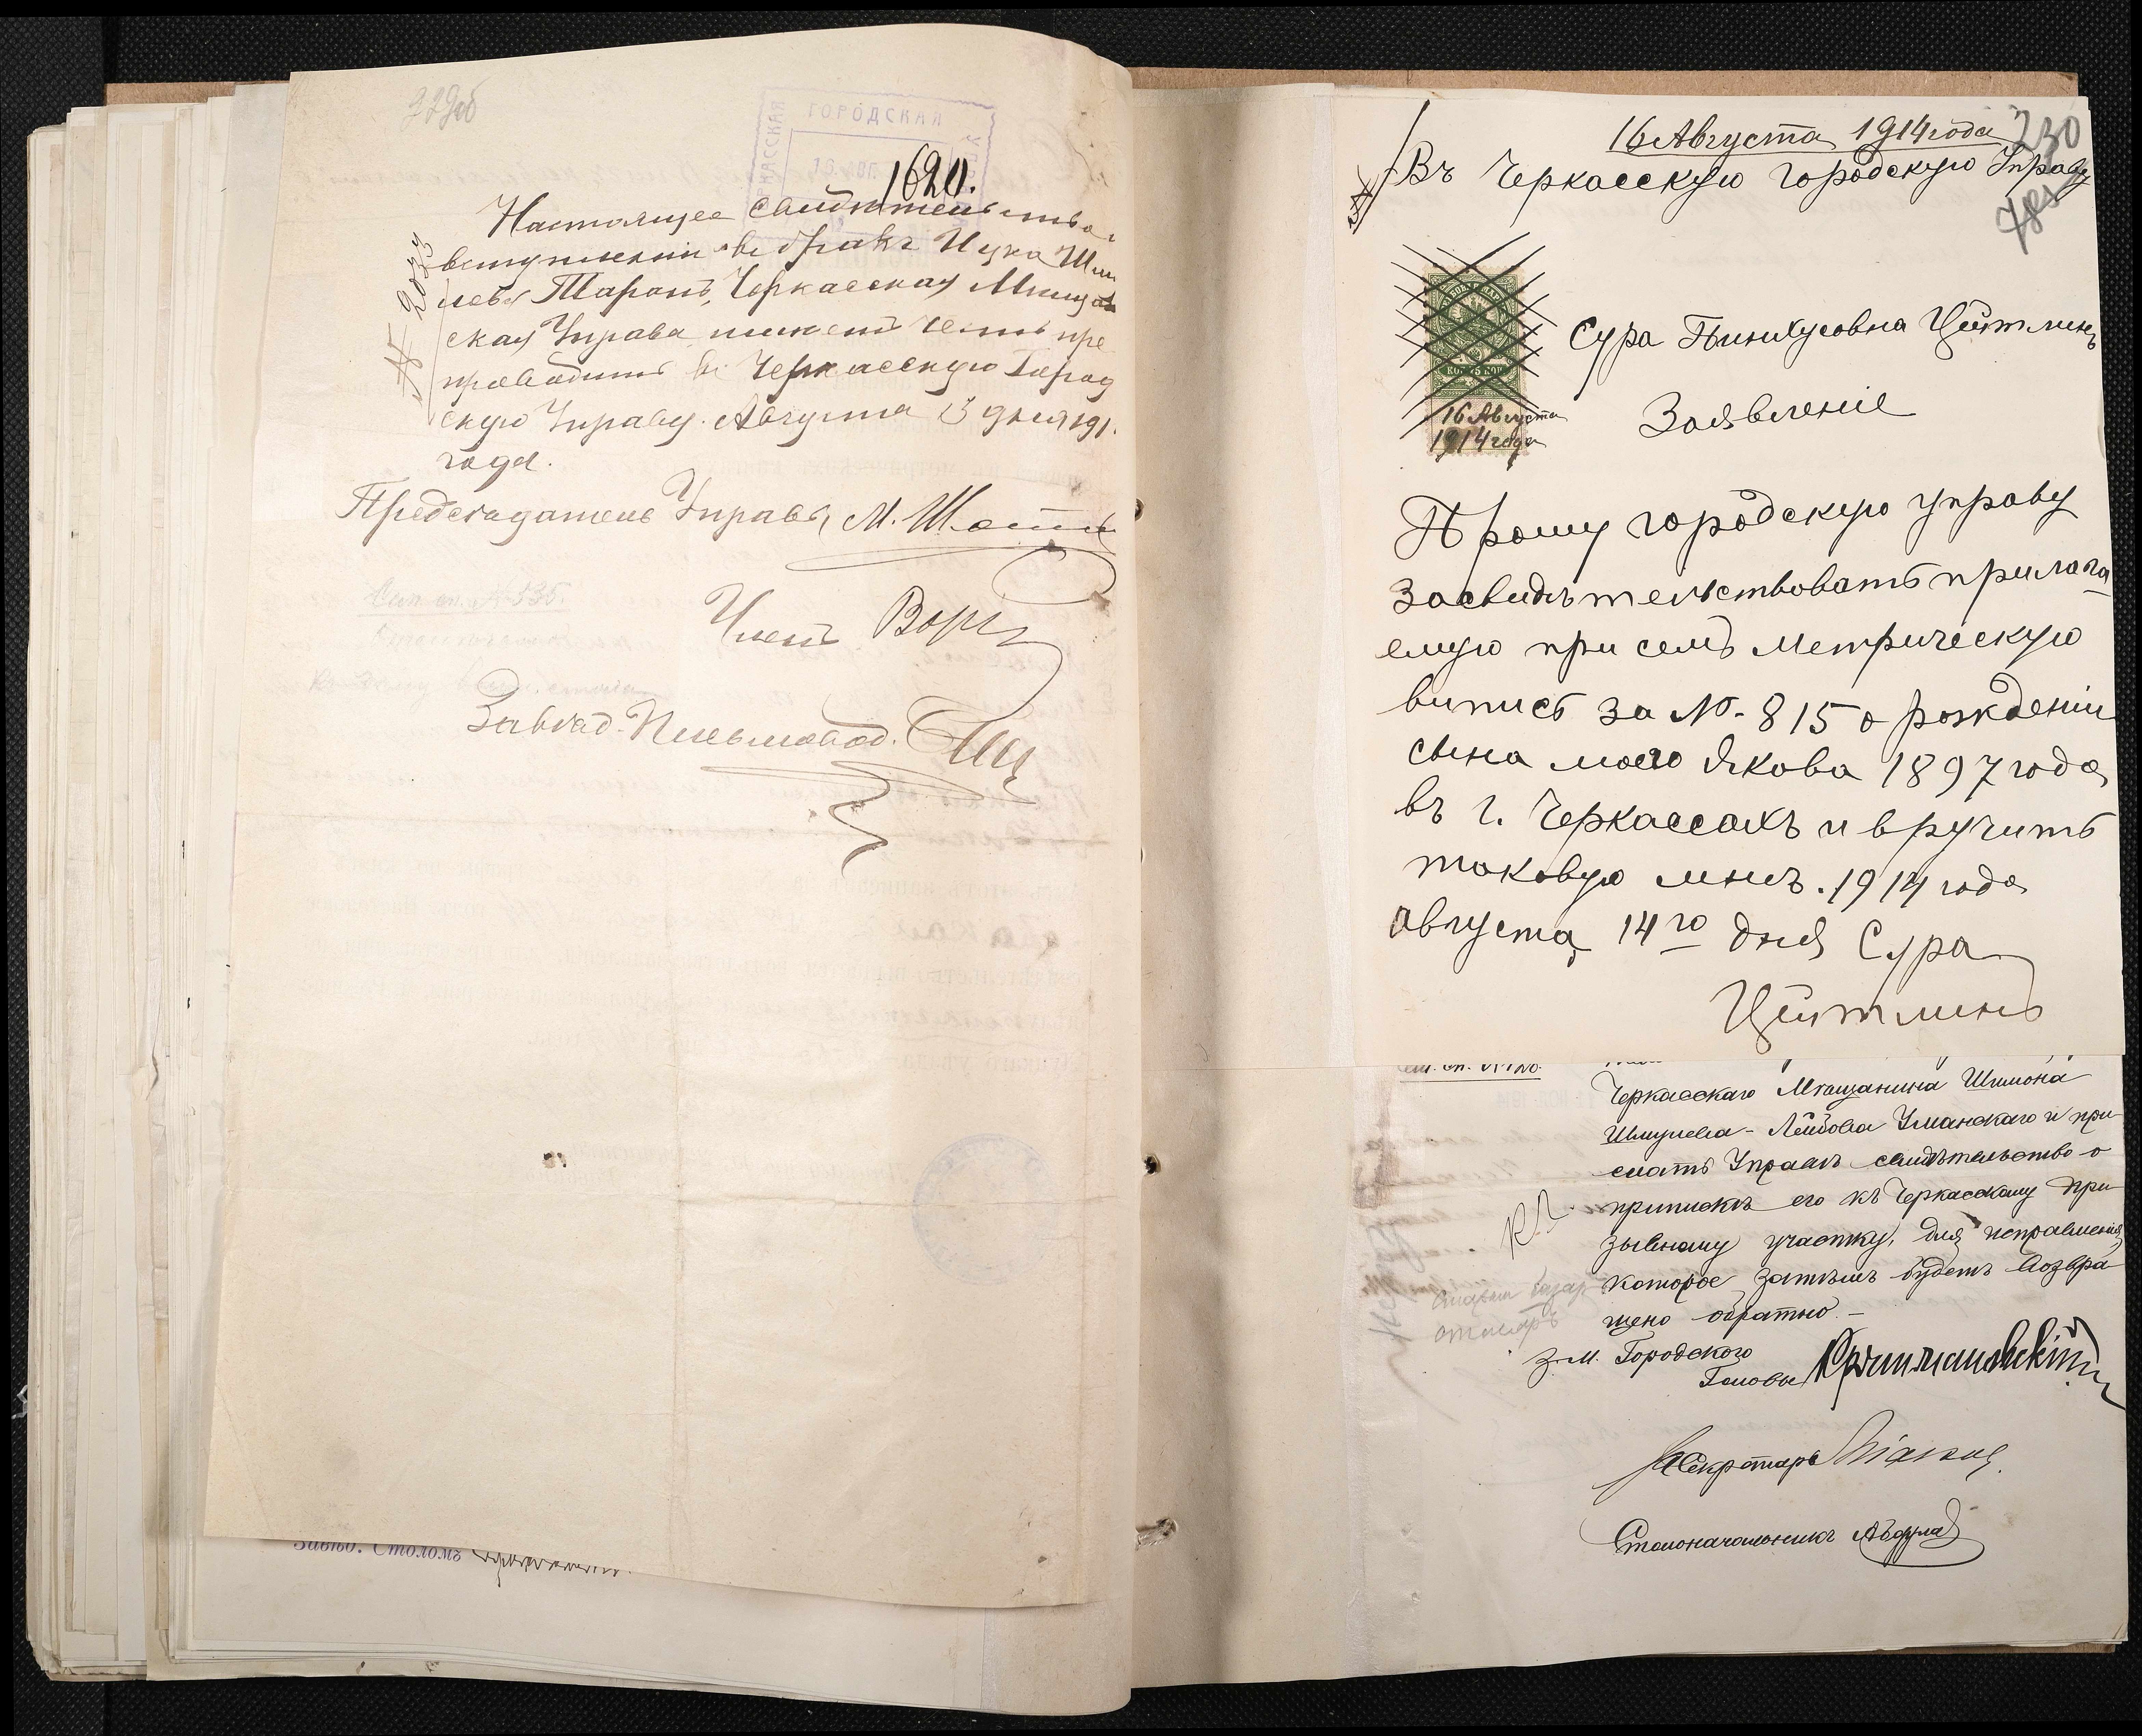 329об
ГОРОДСКАЯ
1620.
Настоящее свидѣтельство о
вступленіи въ бракъ Ицка Шми
лева Таранъ, Черкасская Мѣщан
ская Управа имѣетъ честь пре
проводить въ Черкасскую Город
скую Управу. Августа 13 дня 191
года.
№ 2023
Предсѣдатель Управы М.
Членъ
Завѣд. Письмовод.
Завѣд. Столомъ
16 Августа 1914 года
330
Въ Черкасскую Городскую Управу
Сура Пинхусовна Цейтлинъ
16 Августа
1914 года
Заявленіе
Прошу городскую управу
засвидѣтельствовать прилага
емую при семъ метрическую
випись за №. 815 о рожденіи
сына моего Якова 1897 года
въ г. Черкассахъ и вручить
таковую мнѣ. 1914 года
августа 14го дня Сура
Цейтлинъ
Черкасскаго Мѣщанина Шимона
Шмулева-Лейбова Уманскаго и при
слать Управѣ свидѣтельство о
припискѣ его къ Черкасскому при
зывному участку, для исправленія,
которое затѣмъ будетъ возвра
щено обратно.-
З.м. Городского
Головы
Секретарь
Столоначальникъ